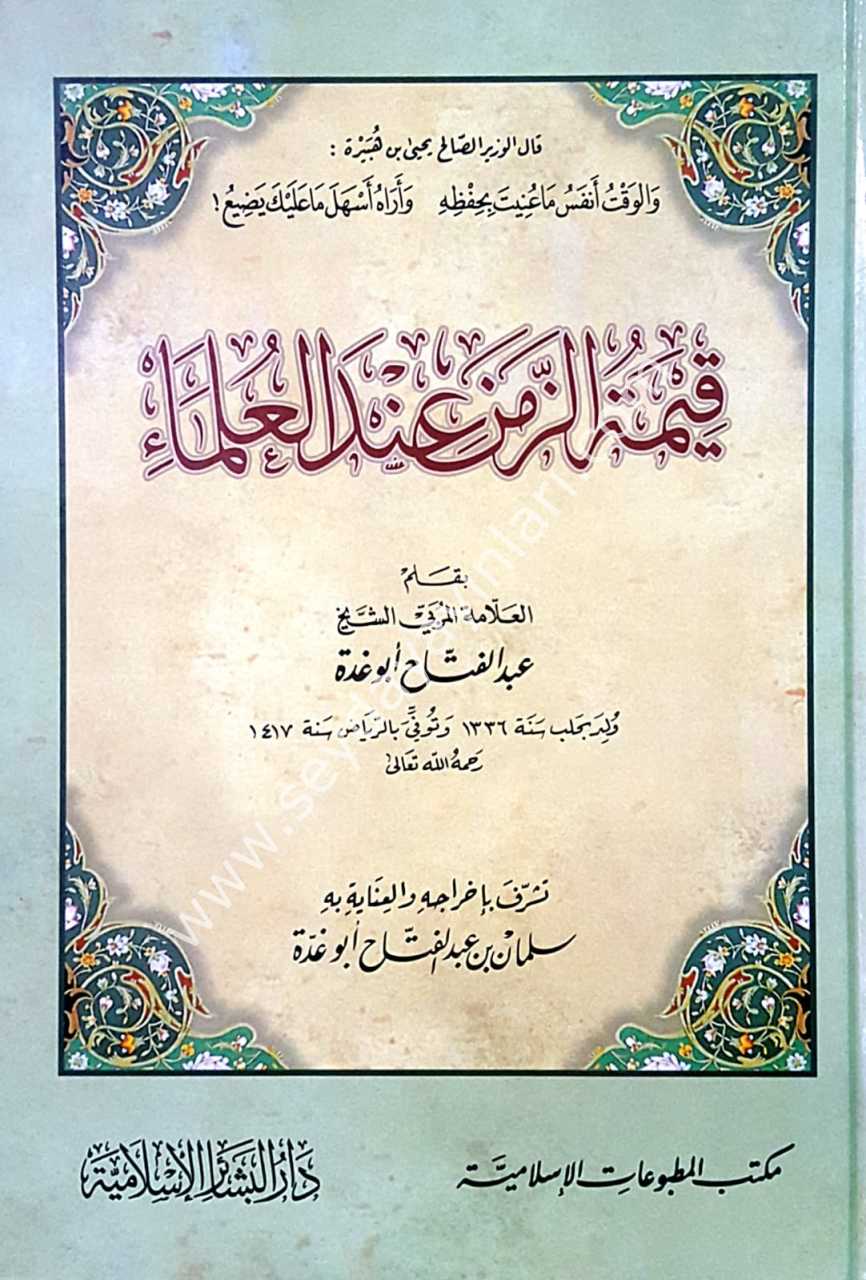 قال الوزير الصّالح يحيى بن هُبَيْرة :
وَالوَقْتُ أَنفَسُ مَا عُنِيتَ بِحِفْظِهِ وَأَرَاهُ أَسْهَلَ مَا عَلَيْكَ يَضِيعُ !
قِيمَةُ الزَّمَنِ عِنْدَ العُلَمَاءِ
بقلم
العلّامة المربّي الشيخ
عبد الفتّاح أبو غدة
وُلِدَ بحلب سَنَة ١٣٣٦ وَتُوفِّيَ بالرّيَاض سَنة ١٤١٧
رَحمهُ الله تعالى
تشرّفَ بإخراجهِ والعِنَايَةِ بهِ
سلمان بن عبد الفتّاح أبو غدّة
مكتب المطبوعات الإسلاميّة
دَارُ البَشَائِر الإِسْلَامِيَّة